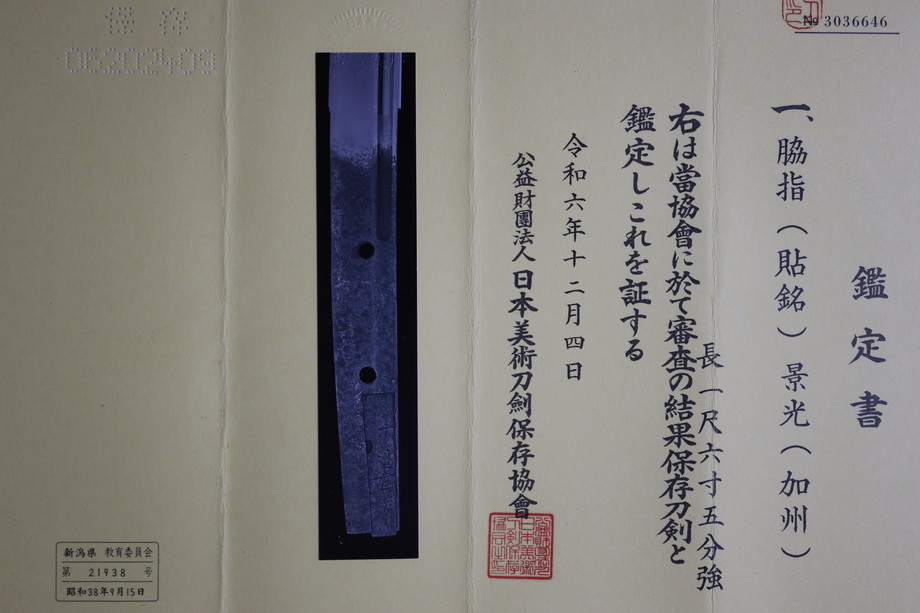 № 3036646
鑑定書
一、脇指（貼銘）景光（加州）
長一尺六寸五分強
右は當協會に於て審査の結果保存刀剣と
鑑定しこれを証する
令和六年十二月四日
公益財團法人 日本美術刀劍保存協會
保存
06202409
新潟県 教育委員会
第 21938 号
昭和38年9月15日